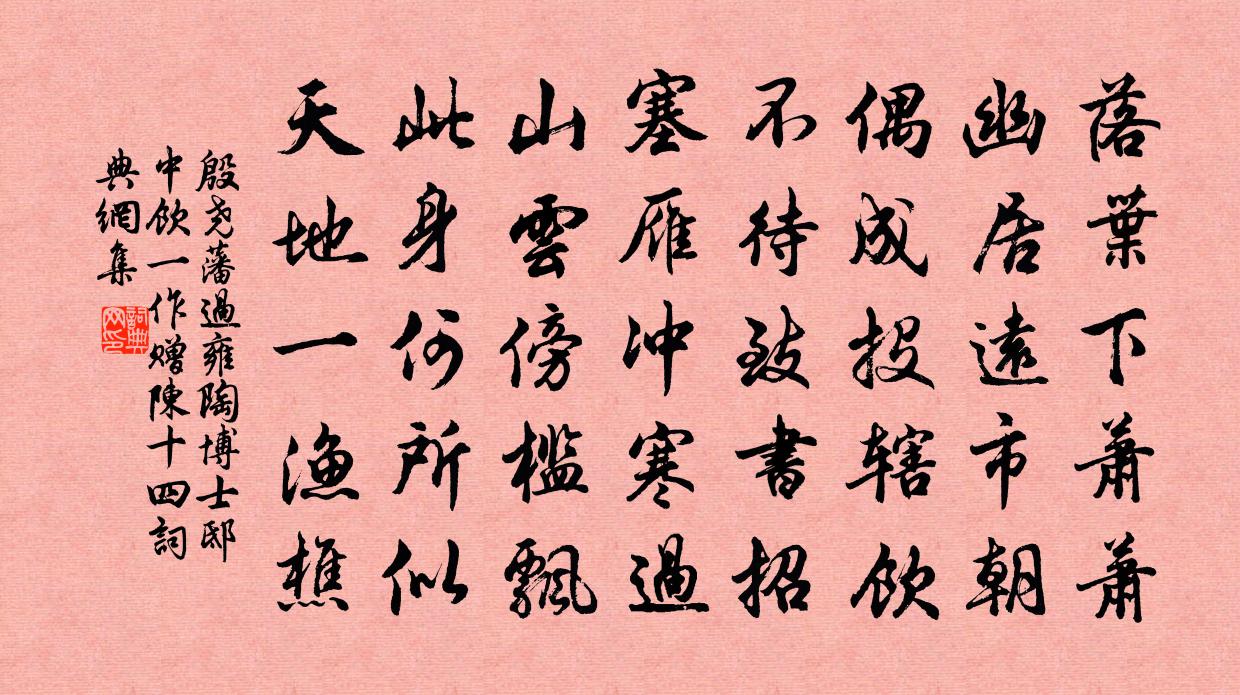 落葉下蕭蕭
幽居遠市朝
偶成投辖飲
不待致書招
塞雁冲寒過
山雲傍檻飄
此身何所似
天地一漁樵
殷尧藩過雍陶博士邸
中飲一作赠陳十四詞
典網集
詞典
网印